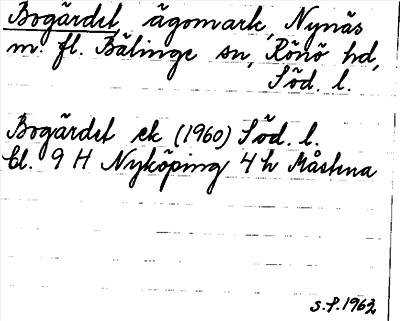 Bogärdet, ägomark, Nynäs
m. fl. Bälinge sn, Rönö hd,
Söd. l.
Bogärdet ek (1960) Söd. l.
bl. 9 H Nyköping 4 h Måstena
S.P. 1962